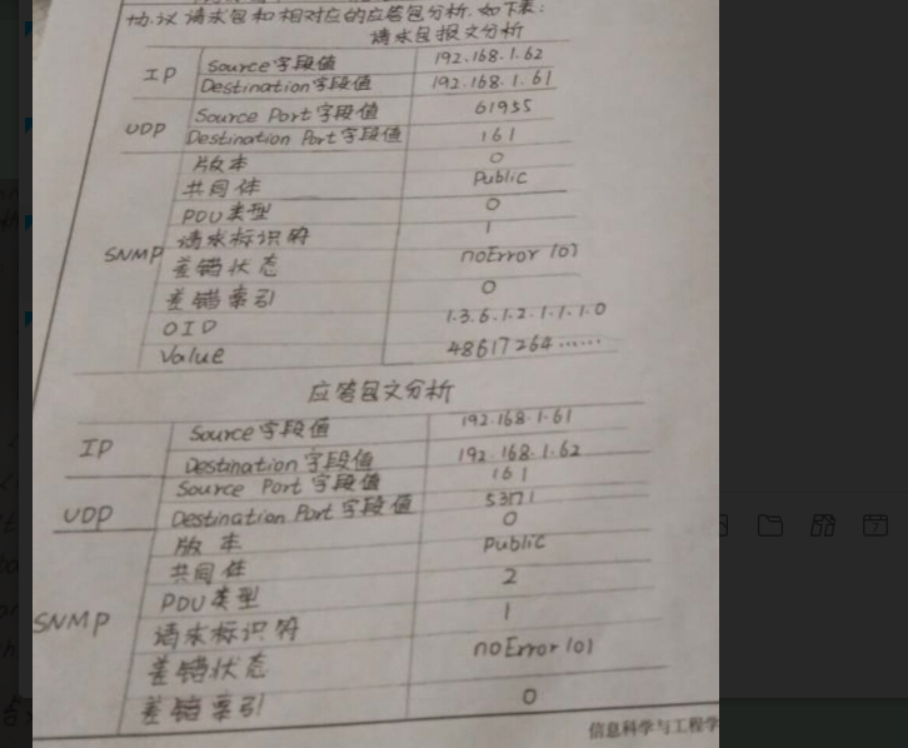 协议请求包和相对应的应答包分析.如下表:
请求包报文分析
IP
Source字段值 192.168.1.62
Destination字段值 192.168.1.61
UDP
Source Port字段值 61955
Destination Port字段值 161
SNMP
版本 0
共同体 Public
PDU类型 0
请求标识符 1
差错状态 noError(0)
差错索引 0
OID 1.3.6.1.2.1.1.1.0
Value 48617264······
应答包文分析
IP
Source字段值 192.168.1.61
Destination字段值 192.168.1.62
UDP
Source Port字段值 161
Destination Port字段值 53171
SNMP
版本 0
共同体 Public
PDU类型 2
请求标识符 1
差错状态 noError(0)
差错索引 0
信息科学与工程学